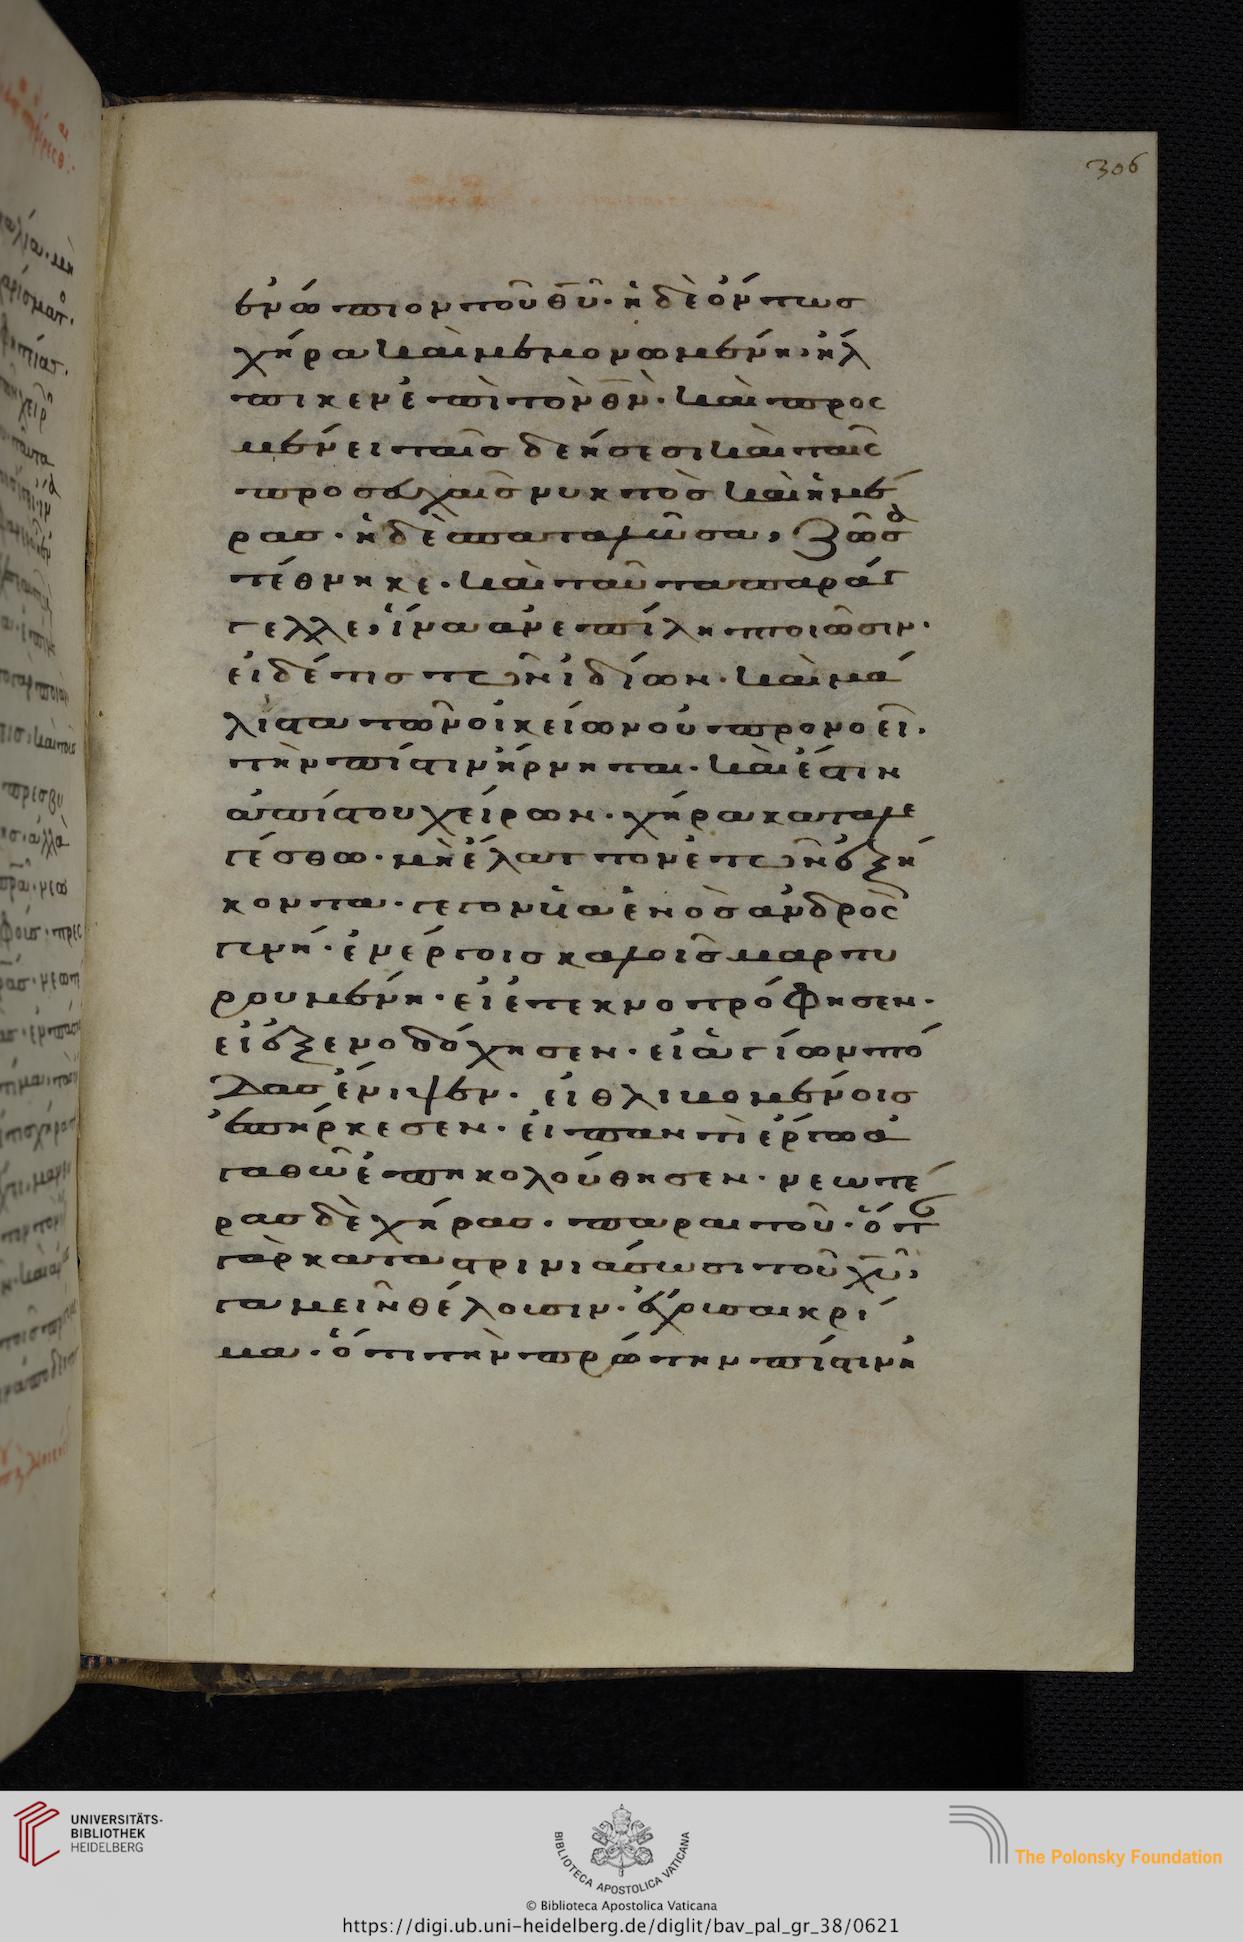 306
ἐνώπιον τοῦ θ̅υ̅· ἡ δὲ ὄντως
χήρα καὶ μεμονωμένη, ἤλ
πικεν ἐπὶ τὸν θ̅ν̅· καὶ προς
μένει ταῖς δεήσεσι καὶ ταῖς
προσευχαῖς νυκτὸς καὶ ἡμέ
ρας· ἡ δὲ σπαταλῶσα, ζῶσα
τέθνηκε· καὶ ταῦτα παράγ
γελλε, ἵνα ἀνεπίληπτοι ὦσιν·
εἰ δέ τις τῶν ἰδίων· καὶ μά
λιστα τῶν οἰκείων οὐ προνοεῖ·
τὴν πίστιν ἤρνηται· καὶ ἔστιν
ἀπίστου χείρων· χήρα καταλε
γέσθω· μὴ ἔλαττον ἐτῶν ἑξή
κοντα· γεγονυῖα ἑνὸς ἀνδρὸς
γυνή· ἐν ἔργοις καλοῖς μαρτυ
ρουμένη· εἰ ἐτεκνοτρόφησεν·
εἰ ἐξενοδόχησεν· εἰ ἁγίων πό
δας ἔνιψεν· εἰ θλιβομένοις
ἐπήρκεσεν· εἰ παντὶ ἔργω ἀ
γαθῶ ἐπηκολούθησεν· νεωτέ
ρας δὲ χήρας· παραιτοῦ· ὅτ
γὰρ καταστρινιάσωσι τοῦ χ̅υ̅,
γαμεῖν θέλουσιν· ἔχουσαι κρί
μα· ὅτι τὴν πρώτην πίστιν ἠ
UNIVERSITÄTS-
BIBLIOTHEK
HEIDELBERG
BIBLIOTECA APOSTOLICA VATICANA
The Polonsky Foundation
© Biblioteca Apostolica Vaticana
https://digi.ub.uni-heidelberg.de/diglit/bav_pal_gr_38/0621